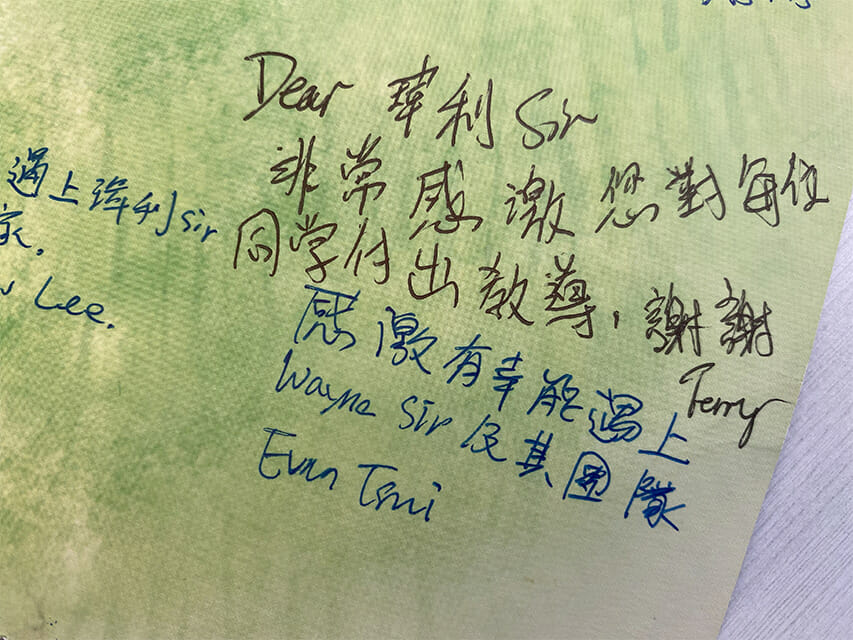 Dear 瑋利 Sir
非常感激您對每位
同學付出教導，謝謝
Terry
感激有幸能遇上
Wayne Sir 及其團隊
Evan Tsui
遇上瑋利 sir
家.
Lee.